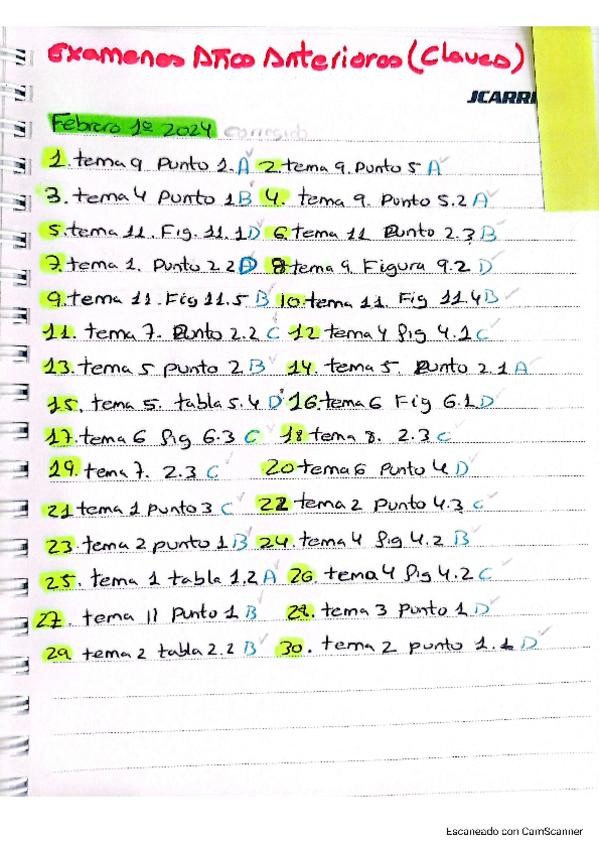 Examenes Años Anteriores (Claves)
JCARRI
Febrero 1º 2024 corregido
1. tema 9 Punto 1. A 2. tema 9. Punto 5 A
3. tema 4 Punto 1 B 4. tema 9. Punto 5.2 A
5. tema 11. Fig. 11.1 D 6. tema 11 Punto 2.3 B
7. tema 1. Punto 2.2 D 8 tema 9 Figura 9.2 D
9. tema 11. Fig 11.5 B 10. tema 11. Fig 11.4 B
11. tema 7. Punto 2.2 C 12 tema 4 fig 4.1 C
13. tema 5 punto 2 B 14. tema 5. Punto 2.1 A
15. tema 5. tabla 5.4 D 16. tema 6 Fig 6.1 D
17. tema 6 fig 6.3 C 18 tema 8. 2.3 C
19. tema 7. 2.3 C 20 tema 6 Punto 4 D
21 tema 1 punto 3 C 22 tema 2 Punto 4.3 C
23. tema 2 punto 1 B 24. tema 4 fig 4.2 B
25. tema 1 tabla 1.2 A 26. tema 4 fig 4.2 C
27. tema 11 Punto 1 B 28. tema 3 Punto 1 D
29 tema 2 tabla 2.2 B 30. tema 2 punto 1.1 D
Escaneado con CamScanner